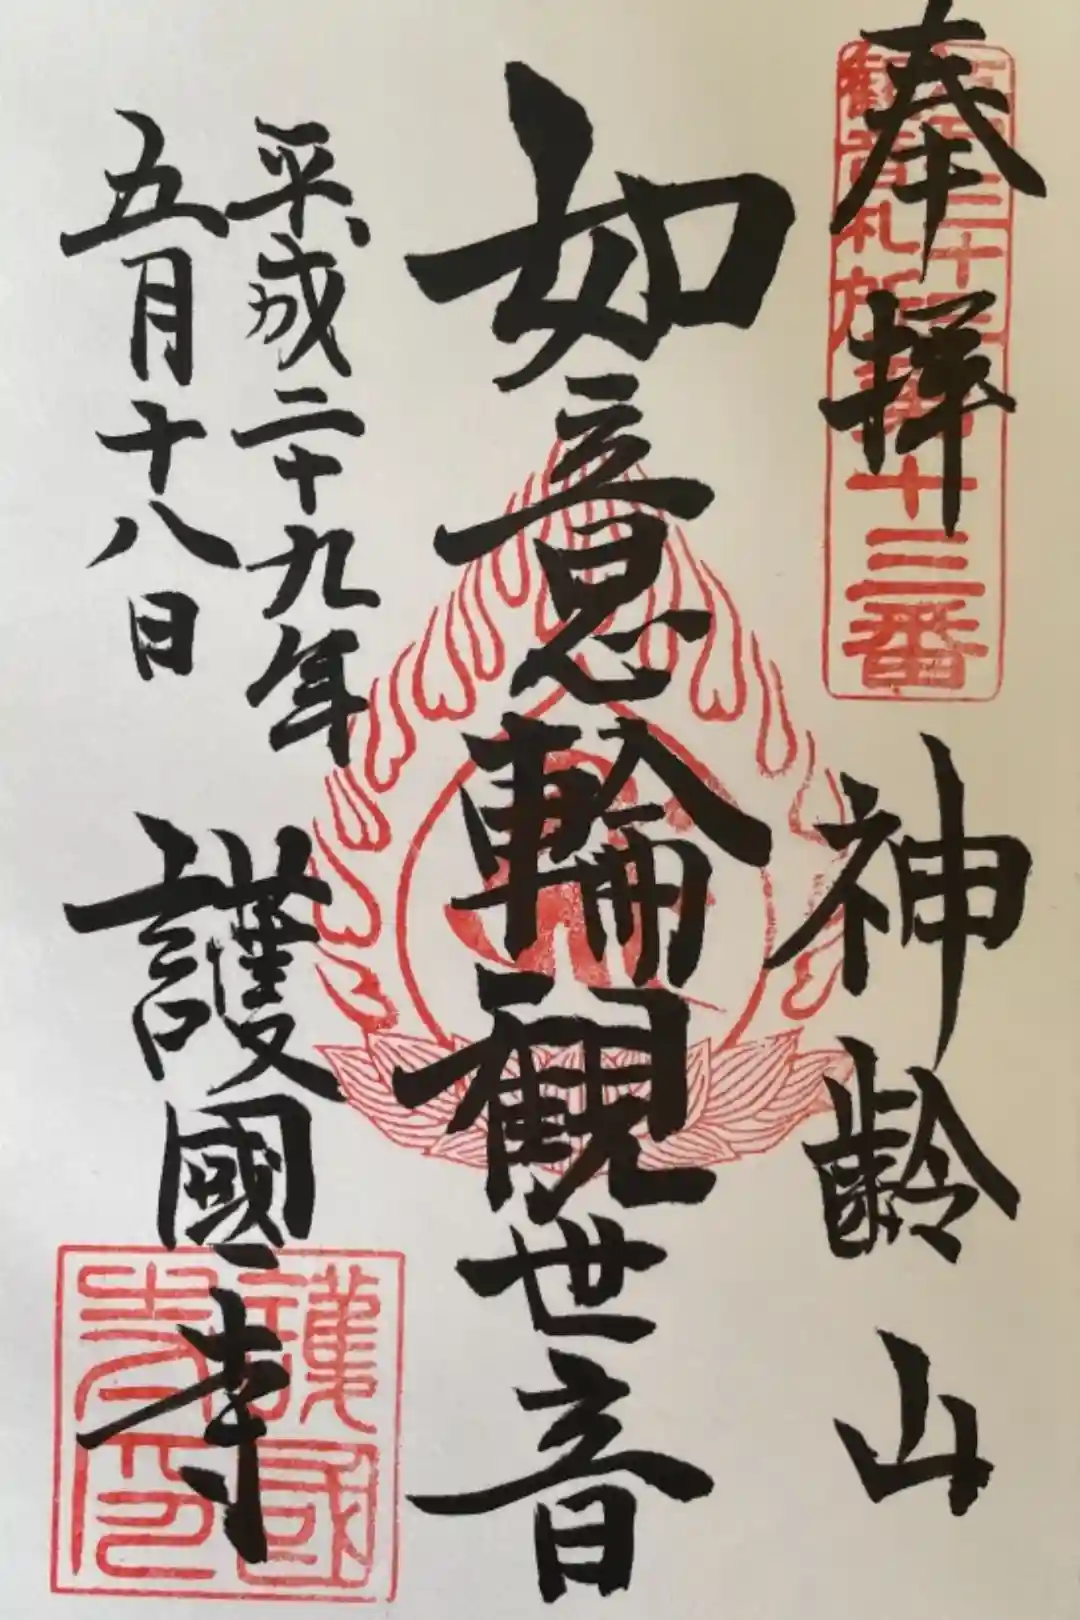 奉拝
三十三
観音札所第十三番
神齢山
如意輪観世音
平成二十九年
五月十八日
護國寺
護國
寺印